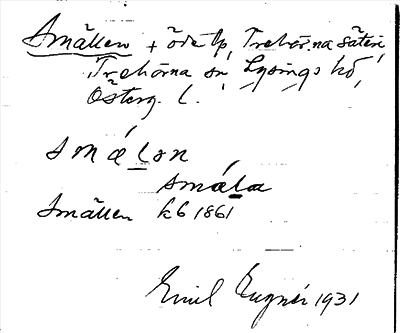 Smällen + öde tp, Trehörna säteri,
Trehörna sn Lysings hd,
Österg. l.
smálon
småla
Smällen kb 1861
Emil 1931